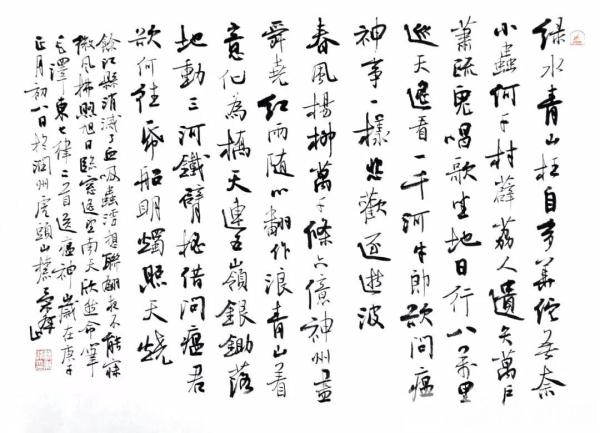 绿水青山枉自多華佗無奈
小蟲何千村薜荔人遺矢萬戶
蕭疏鬼唱歌坐地日行八万里
巡天遙看一千河牛郎欲問瘟
神事一樣悲歡逐逝波
春風楊柳萬千條六億神州盡
舜堯紅雨隨心翻作浪青山着
意化為橋天連五嶺銀鋤落
地動三河鐵臂搖借問瘟君
欲何往紙船明燭照天燒
餘江縣消滅了血吸蟲浮想聯翩夜不能寐
微風拂煦旭日臨窗遙望南天欣然命筆
毛澤東七律二首送瘟神歲在庚子
正月初八日於潤州虎頭山